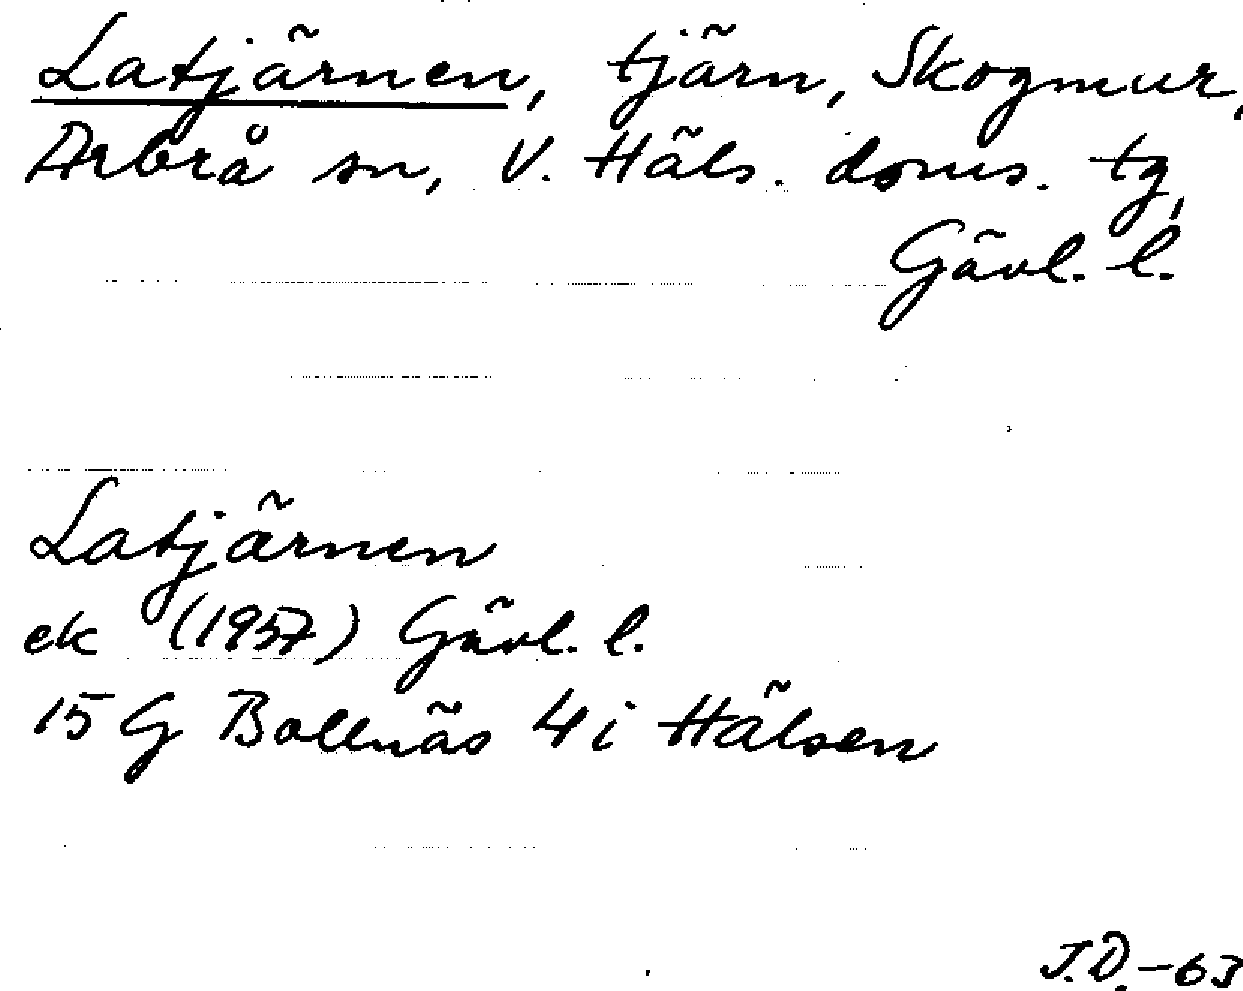 Latjärnen, tjärn, Skogmur,
Arbrå sn, V. Häls. doms. tg,
Gävl. l.
Latjärnen
ek (1957) Gävl. l.
15 G Bollnäs 4 i Hälsen
J.D.-63